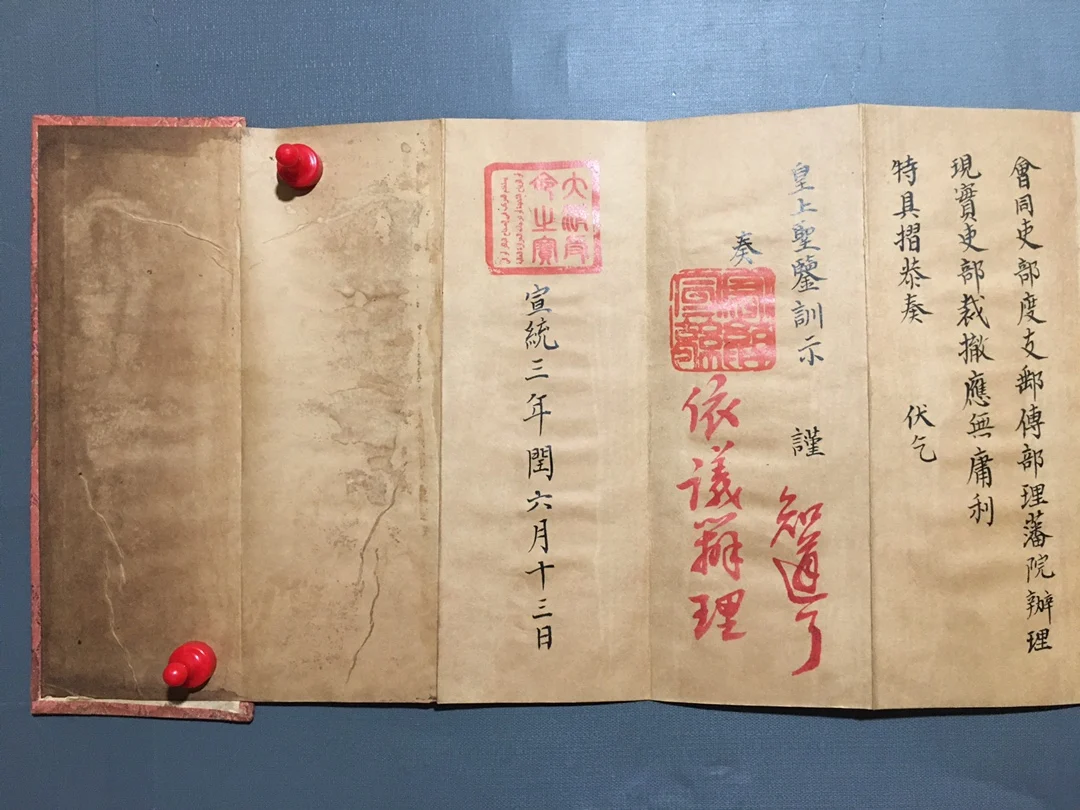 會同吏部度支郵傳部理藩院辦理
現實吏部裁撤應無庸利
特具摺恭奏 伏乞
皇上聖鑒訓示 謹
知道了
奏
依議辦理
大清受命之寶
宣統三年閏六月十三日